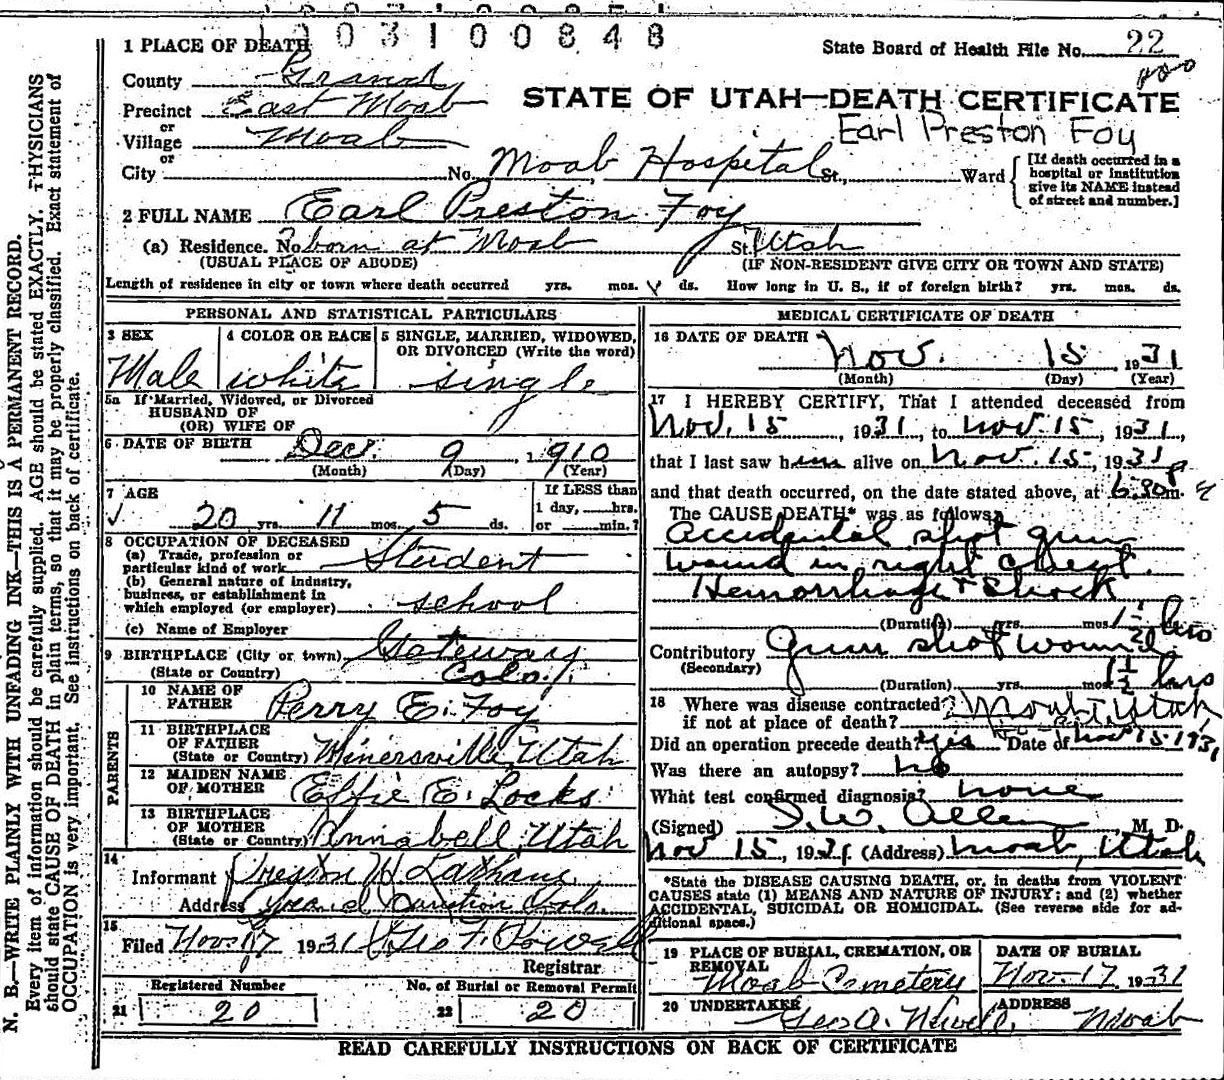 1003100848
1 PLACE OF DEATH
State Board of Health File No. 22
County Grand
Precinct East Moab
STATE OF UTAH—DEATH CERTIFICATE
or
Village Moab
Earl Preston Foy
or
City No. Moab Hospital St., Ward
[If death occurred in a hospital or institution give its NAME instead of street and number.]
2 FULL NAME Earl Preston Foy
(a) Residence. No. born at Moab St. Utah
(USUAL PLACE OF ABODE) (IF NON-RESIDENT GIVE CITY OR TOWN AND STATE)
Length of residence in city or town where death occurred yrs. mos. ds. How long in U. S., if of foreign birth? yrs. mos. ds.
PERSONAL AND STATISTICAL PARTICULARS
3 SEX 4 COLOR OR RACE 5 SINGLE, MARRIED, WIDOWED, OR DIVORCED (Write the word)
Male white single
5a If Married, Widowed, or Divorced
HUSBAND OF
(OR) WIFE OF
6 DATE OF BIRTH Dec. 9 1910
(Month) (Day) (Year)
7 AGE If LESS than
20 yrs. 11 mos. 5 ds. 1 day, hrs.
or min.?
8 OCCUPATION OF DECEASED
(a) Trade, profession or
particular kind of work Student
(b) General nature of industry,
business, or establishment in
which employed (or employer) school
(c) Name of Employer
9 BIRTHPLACE (City or town) Gateway
(State or Country) Colo.
PARENTS
10 NAME OF
FATHER Perry E. Foy
11 BIRTHPLACE
OF FATHER
(State or Country) Minersville, Utah
12 MAIDEN NAME
OF MOTHER Effie E. Locks
13 BIRTHPLACE
OF MOTHER
(State or Country) Annabell, Utah
14
Informant Preston H
Address Grand Junction Colo.
15
Filed Nov 17 1931 Geo F. Powell
Registrar
Registered Number No. of Burial or Removal Permit
21 20 22 20
MEDICAL CERTIFICATE OF DEATH
16 DATE OF DEATH Nov. 15 1931
(Month) (Day) (Year)
17 I HEREBY CERTIFY, That I attended deceased from
Nov. 15, 1931, to Nov. 15, 1931,
that I last saw him alive on Nov. 15, 1931
and that death occurred, on the date stated above, at 6:30 p m.
The CAUSE DEATH* was as follows:
Accidental shot gun
wound in right chest.
Hemorrhage + Shock
(Duration) yrs. mos. 1 1/2 hrs
Contributory Gun shot wound
(Secondary)
(Duration) yrs. mos. 1 1/2 hrs
18 Where was disease contracted
if not at place of death? Moab, Utah
Did an operation precede death? yes Date of Nov 15 1931
Was there an autopsy? no
What test confirmed diagnosis? none
(Signed) I. W. Allen M. D.
Nov 15, 1931. (Address) Moab, Utah
*State the DISEASE CAUSING DEATH, or, in deaths from VIOLENT
CAUSES state (1) MEANS AND NATURE OF INJURY; and (2) whether
ACCIDENTAL, SUICIDAL OR HOMICIDAL. (See reverse side for ad-
ditional space.)
19 PLACE OF BURIAL, CREMATION, OR REMOVAL DATE OF BURIAL
Moab Cemetery Nov. 17 1931
20 UNDERTAKER ADDRESS
Geo. A. Newell. Moab
READ CAREFULLY INSTRUCTIONS ON BACK OF CERTIFICATE
N. B.—WRITE PLAINLY WITH UNFADING INK—THIS IS A PERMANENT RECORD.
Every item of information should be carefully supplied. AGE should be stated EXACTLY. PHYSICIANS
should state CAUSE OF DEATH in plain terms, so that it may be properly classified. Exact statement of
OCCUPATION is very important. See instructions on back of certificate.